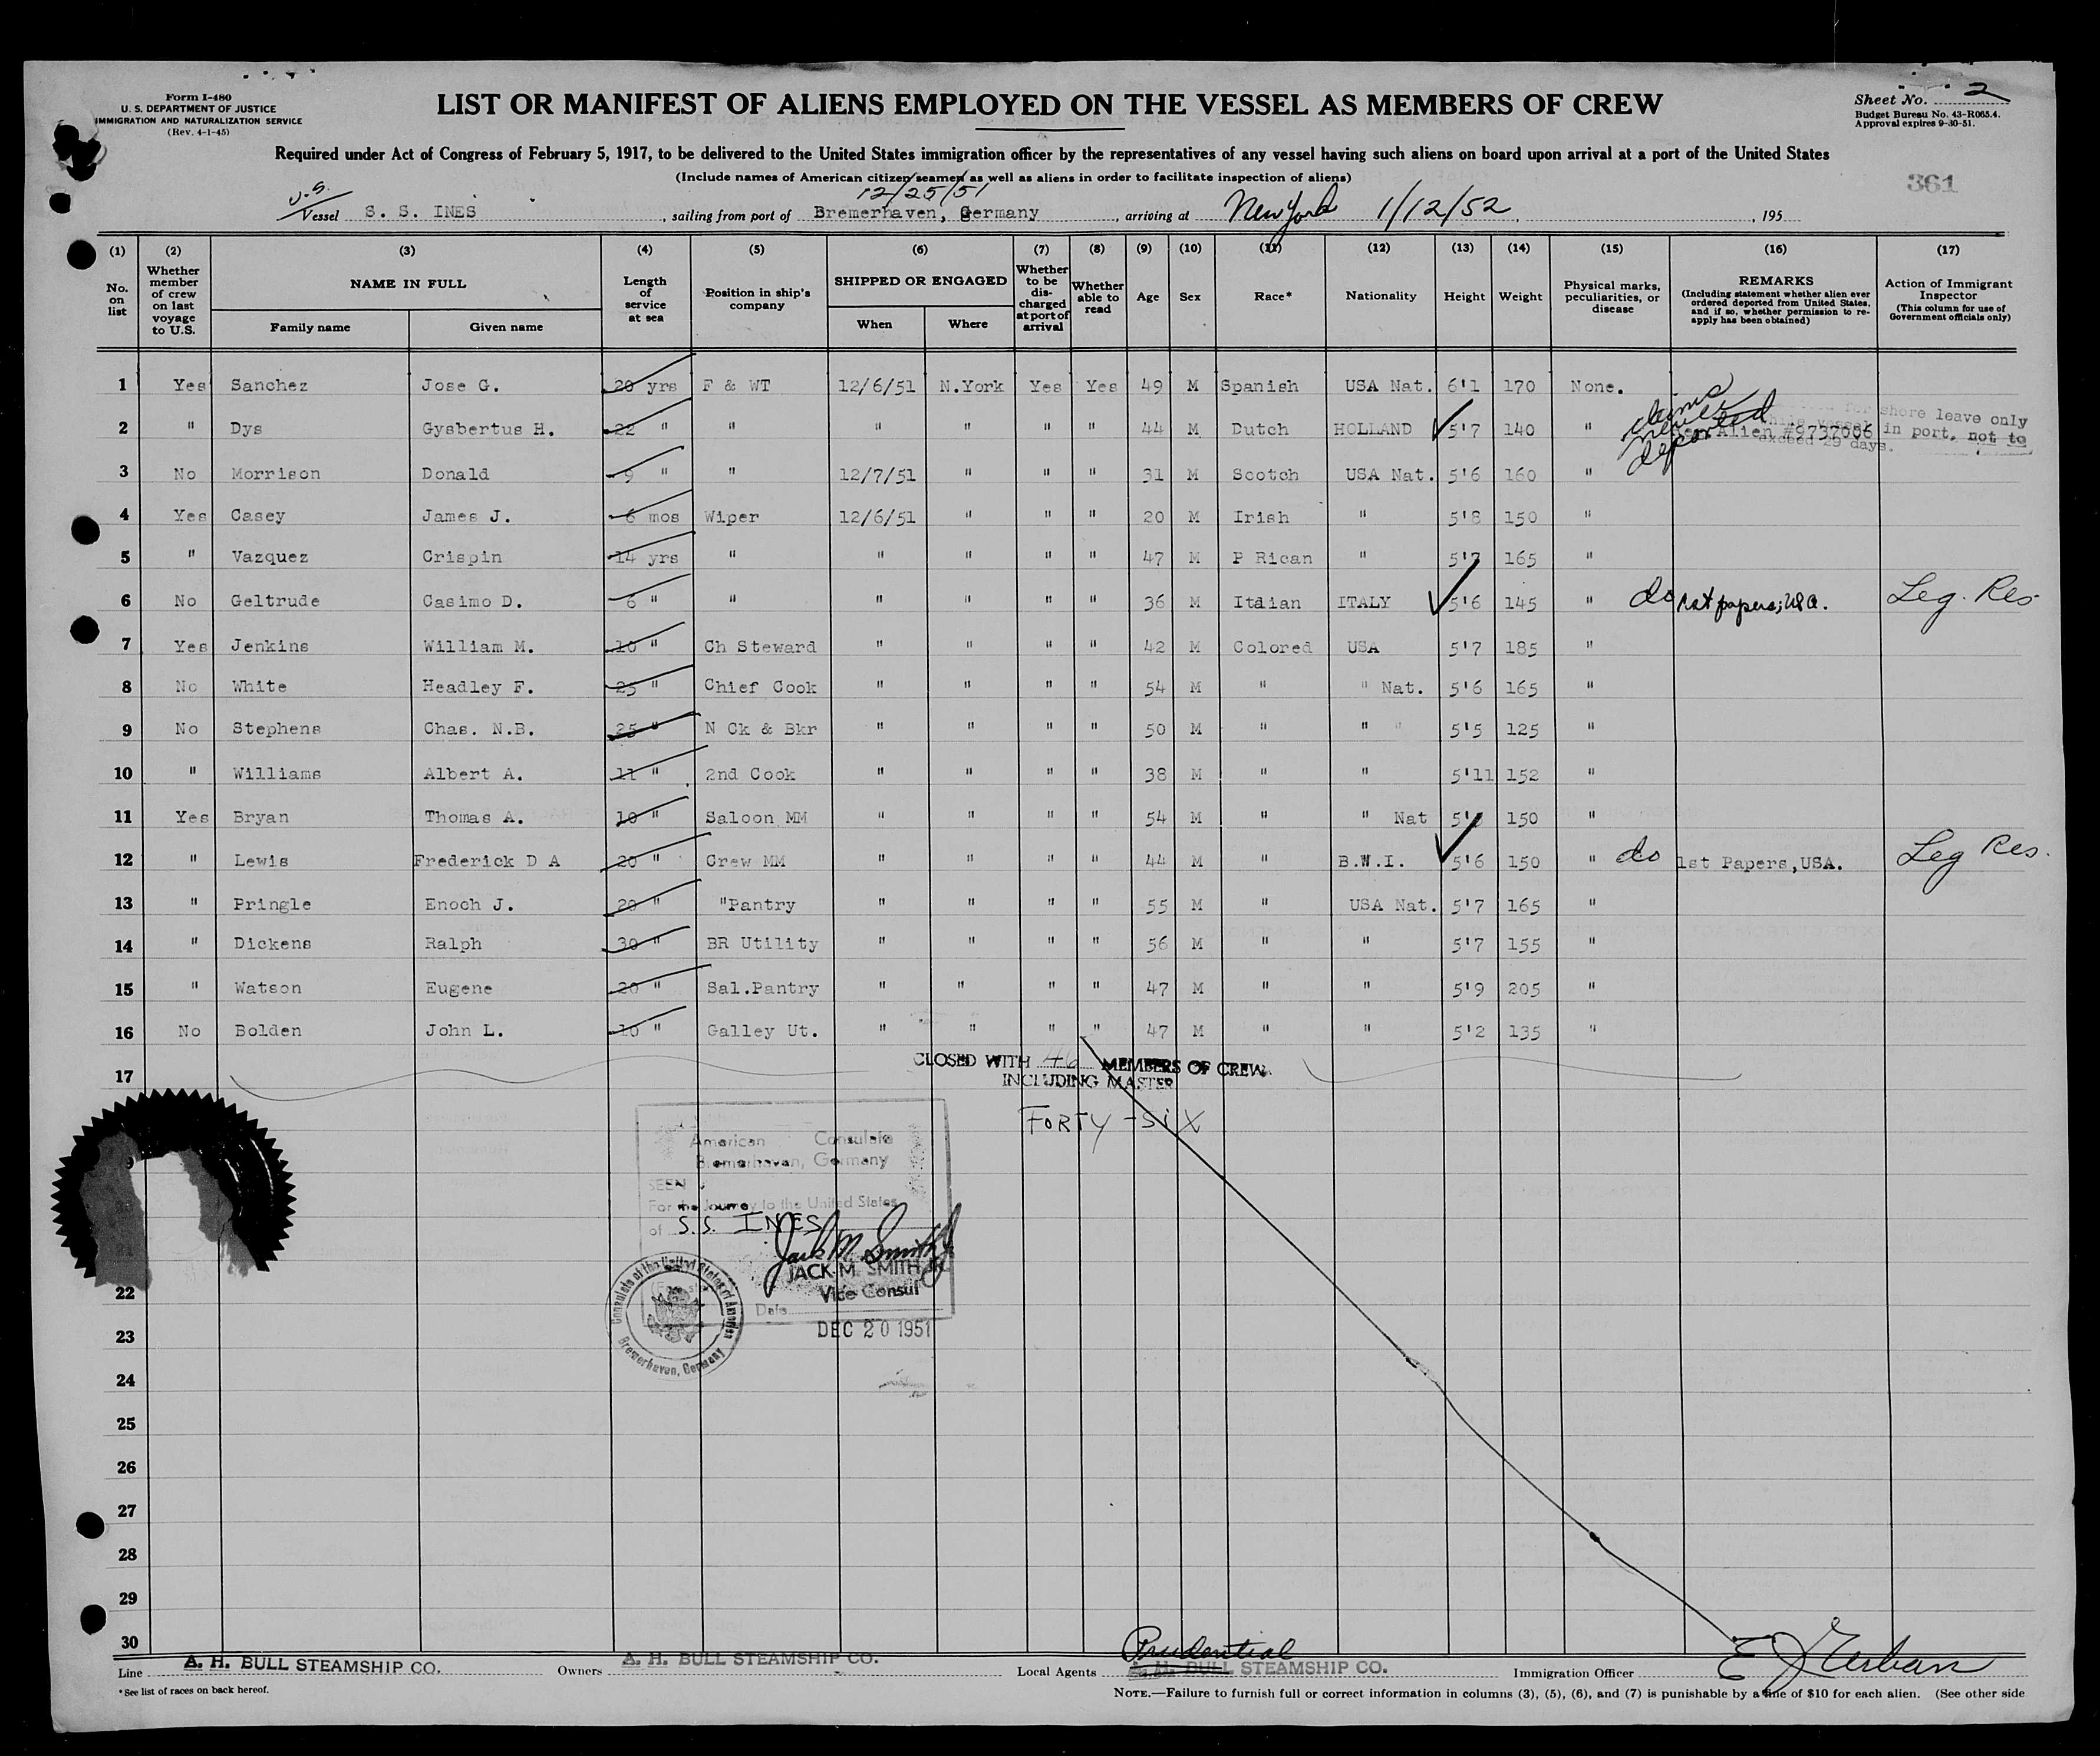 Form I-480
U. S. DEPARTMENT OF JUSTICE
IMMIGRATION AND NATURALIZATION SERVICE
(Rev. 4-1-45)
LIST OR MANIFEST OF ALIENS EMPLOYED ON THE VESSEL AS MEMBERS OF CREW
Sheet No. 2
Budget Bureau No. 43-R065.4.
Approval expires 9-30-51.
Required under Act of Congress of February 5, 1917, to be delivered to the United States immigration officer by the representatives of any vessel having such aliens on board upon arrival at a port of the United States
(Include names of American citizen seamen as well as aliens in order to facilitate inspection of aliens)
361
U.S. 12/25/51
Vessel S. S. INES, sailing from port of Bremerhaven, Germany, arriving at New York 1/12/52, 195
(1) (2) (3) (4) (5) (6) (7) (8) (9) (10) (11) (12) (13) (14) (15) (16) (17)
No. on list
Whether member of crew on last voyage to U.S.
NAME IN FULL
Family name Given name
Length of service at sea
Position in ship's company
SHIPPED OR ENGAGED
When Where
Whether to be discharged at port of arrival
Whether able to read
Age
Sex
Race*
Nationality
Height
Weight
Physical marks, peculiarities, or disease
REMARKS
(Including statement whether alien ever ordered deported from United States, and if so, whether permission to reapply has been obtained)
Action of Immigrant Inspector
(This column for use of Government officials only)
1 Yes Sanchez Jose G. 20 yrs F & WT 12/6/51 N.York Yes Yes 49 M Spanish USA Nat. 6'1 170 None.
2 " Dys Gysbertus H. 22 " " " " " " 44 M Dutch HOLLAND 5'7 140 " claims never deported Alien #9737006
for shore leave only
while vessel in port, not to
exceed 29 days.
3 No Morrison Donald 9 " " 12/7/51 " " " 31 M Scotch USA Nat. 5'6 160 "
4 Yes Casey James J. 6 mos Wiper 12/6/51 " " " 20 M Irish " 5'8 150 "
5 " Vazquez Crispin 14 yrs " " " " " 47 M P Rican " 5'7 165 "
6 No Geltrude Casimo D. 6 " " " " " " 36 M Itaian ITALY 5'6 145 " do 1st papers; USA. Leg. Res.
7 Yes Jenkins William M. 10 " Ch Steward " " " " 42 M Colored USA 5'7 185 "
8 No White Headley F. 25 " Chief Cook " " " " 54 M " " Nat. 5'6 165 "
9 No Stephens Chas. N.B. 25 " N Ck & Bkr " " " " 50 M " " " 5'5 125 "
10 " Williams Albert A. 11 " 2nd Cook " " " " 38 M " " 5'11 152 "
11 Yes Bryan Thomas A. 10 " Saloon MM " " " " 54 M " " Nat 150 "
12 " Lewis Frederick D A 20 " Crew MM " " " " 44 M " B.W.I. 5'6 150 " do 1st Papers,USA. Leg Res.
13 " Pringle Enoch J. 20 " "Pantry " " " " 55 M " USA Nat. 5'7 165 "
14 " Dickens Ralph 30 " BR Utility " " " " 56 M " " 5'7 155 "
15 " Watson Eugene 20 " Sal.Pantry " " " " 47 M " " 5'9 205 "
16 No Bolden John L. 10 " Galley Ut. " " " " 47 M " " 5'2 135 "
CLOSED WITH 46 MEMBERS OF CREW
17
INCLUDING MASTER
FORTY-SIX
American Consulate
Bremerhaven, Germany
SEEN
For the Journey to the United States
of S.S. INES
Jack M. Smith Jr
JACK M. SMITH JR.
Vice Consul
Date
DEC 20 1951
Consulate of the United States of America
Bremerhaven, Germany
21
22
23
24
25
26
27
28
29
30
Line A. H. BULL STEAMSHIP CO. Owners A. H. BULL STEAMSHIP CO. Local Agents Prudential A. H. BULL STEAMSHIP CO. Immigration Officer
*See list of races on back hereof.
NOTE.—Failure to furnish full or correct information in columns (3), (5), (6), and (7) is punishable by a fine of $10 for each alien. (See other side